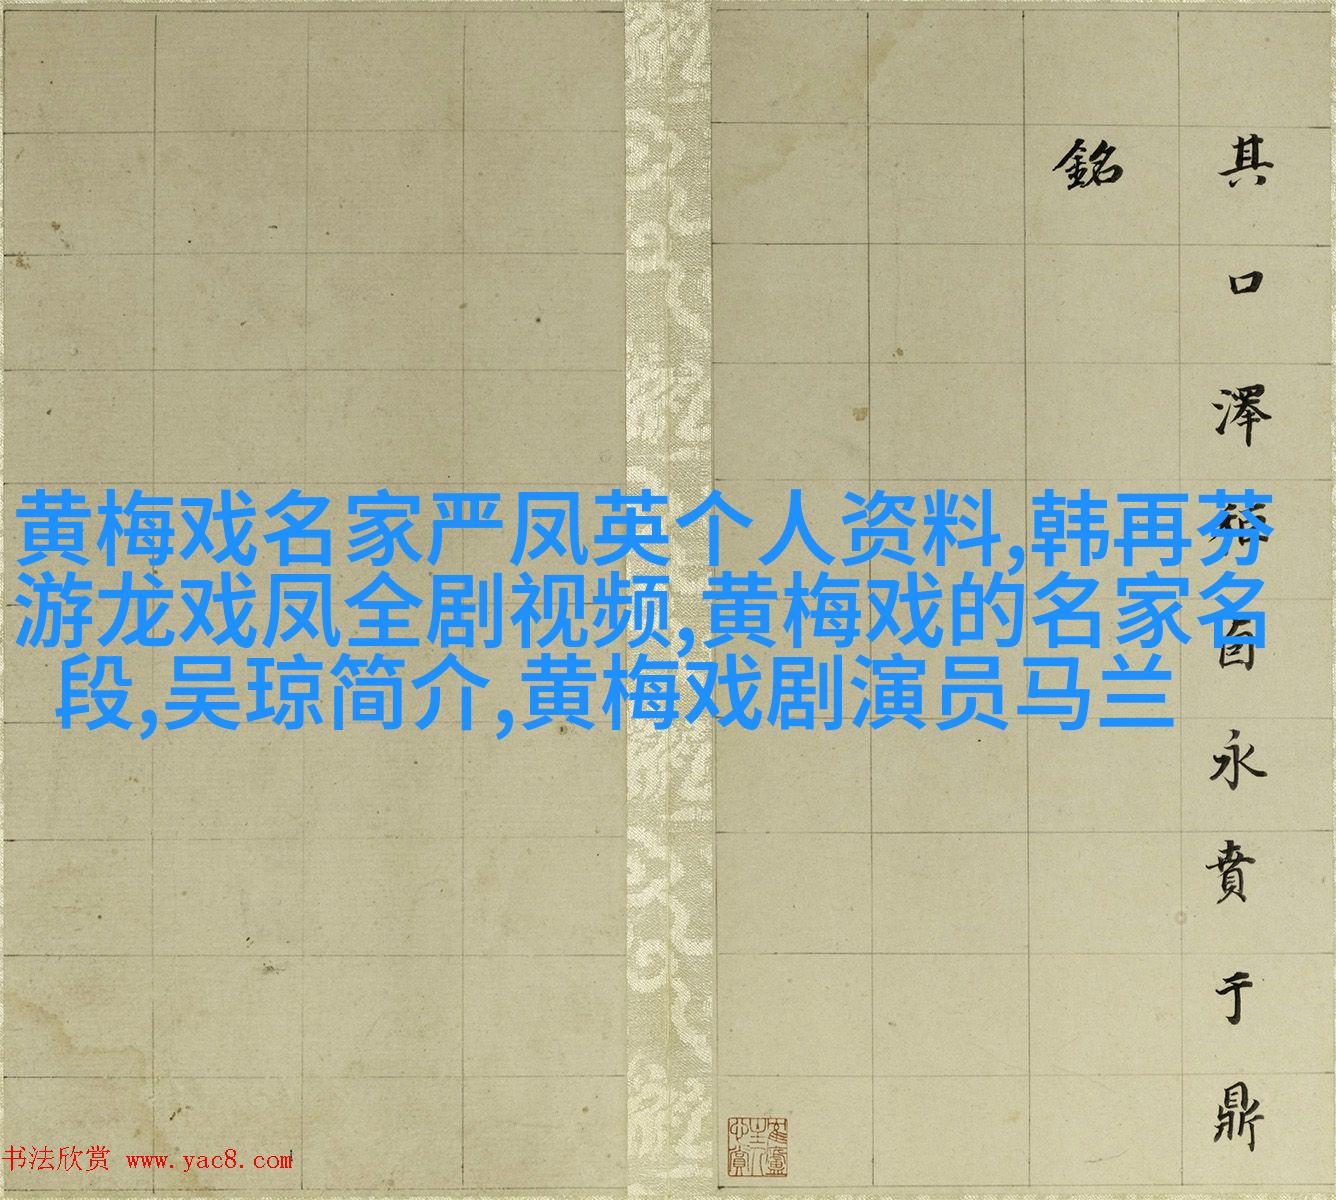 其口澤
永賁于鼎
銘
黄梅戏名家严凤英个人资料,韩再芬
游龙戏凤全剧视频,黄梅戏的名家名
段,吴琼简介,黄梅戏剧演员马兰
书法欣赏 www.yac8.com